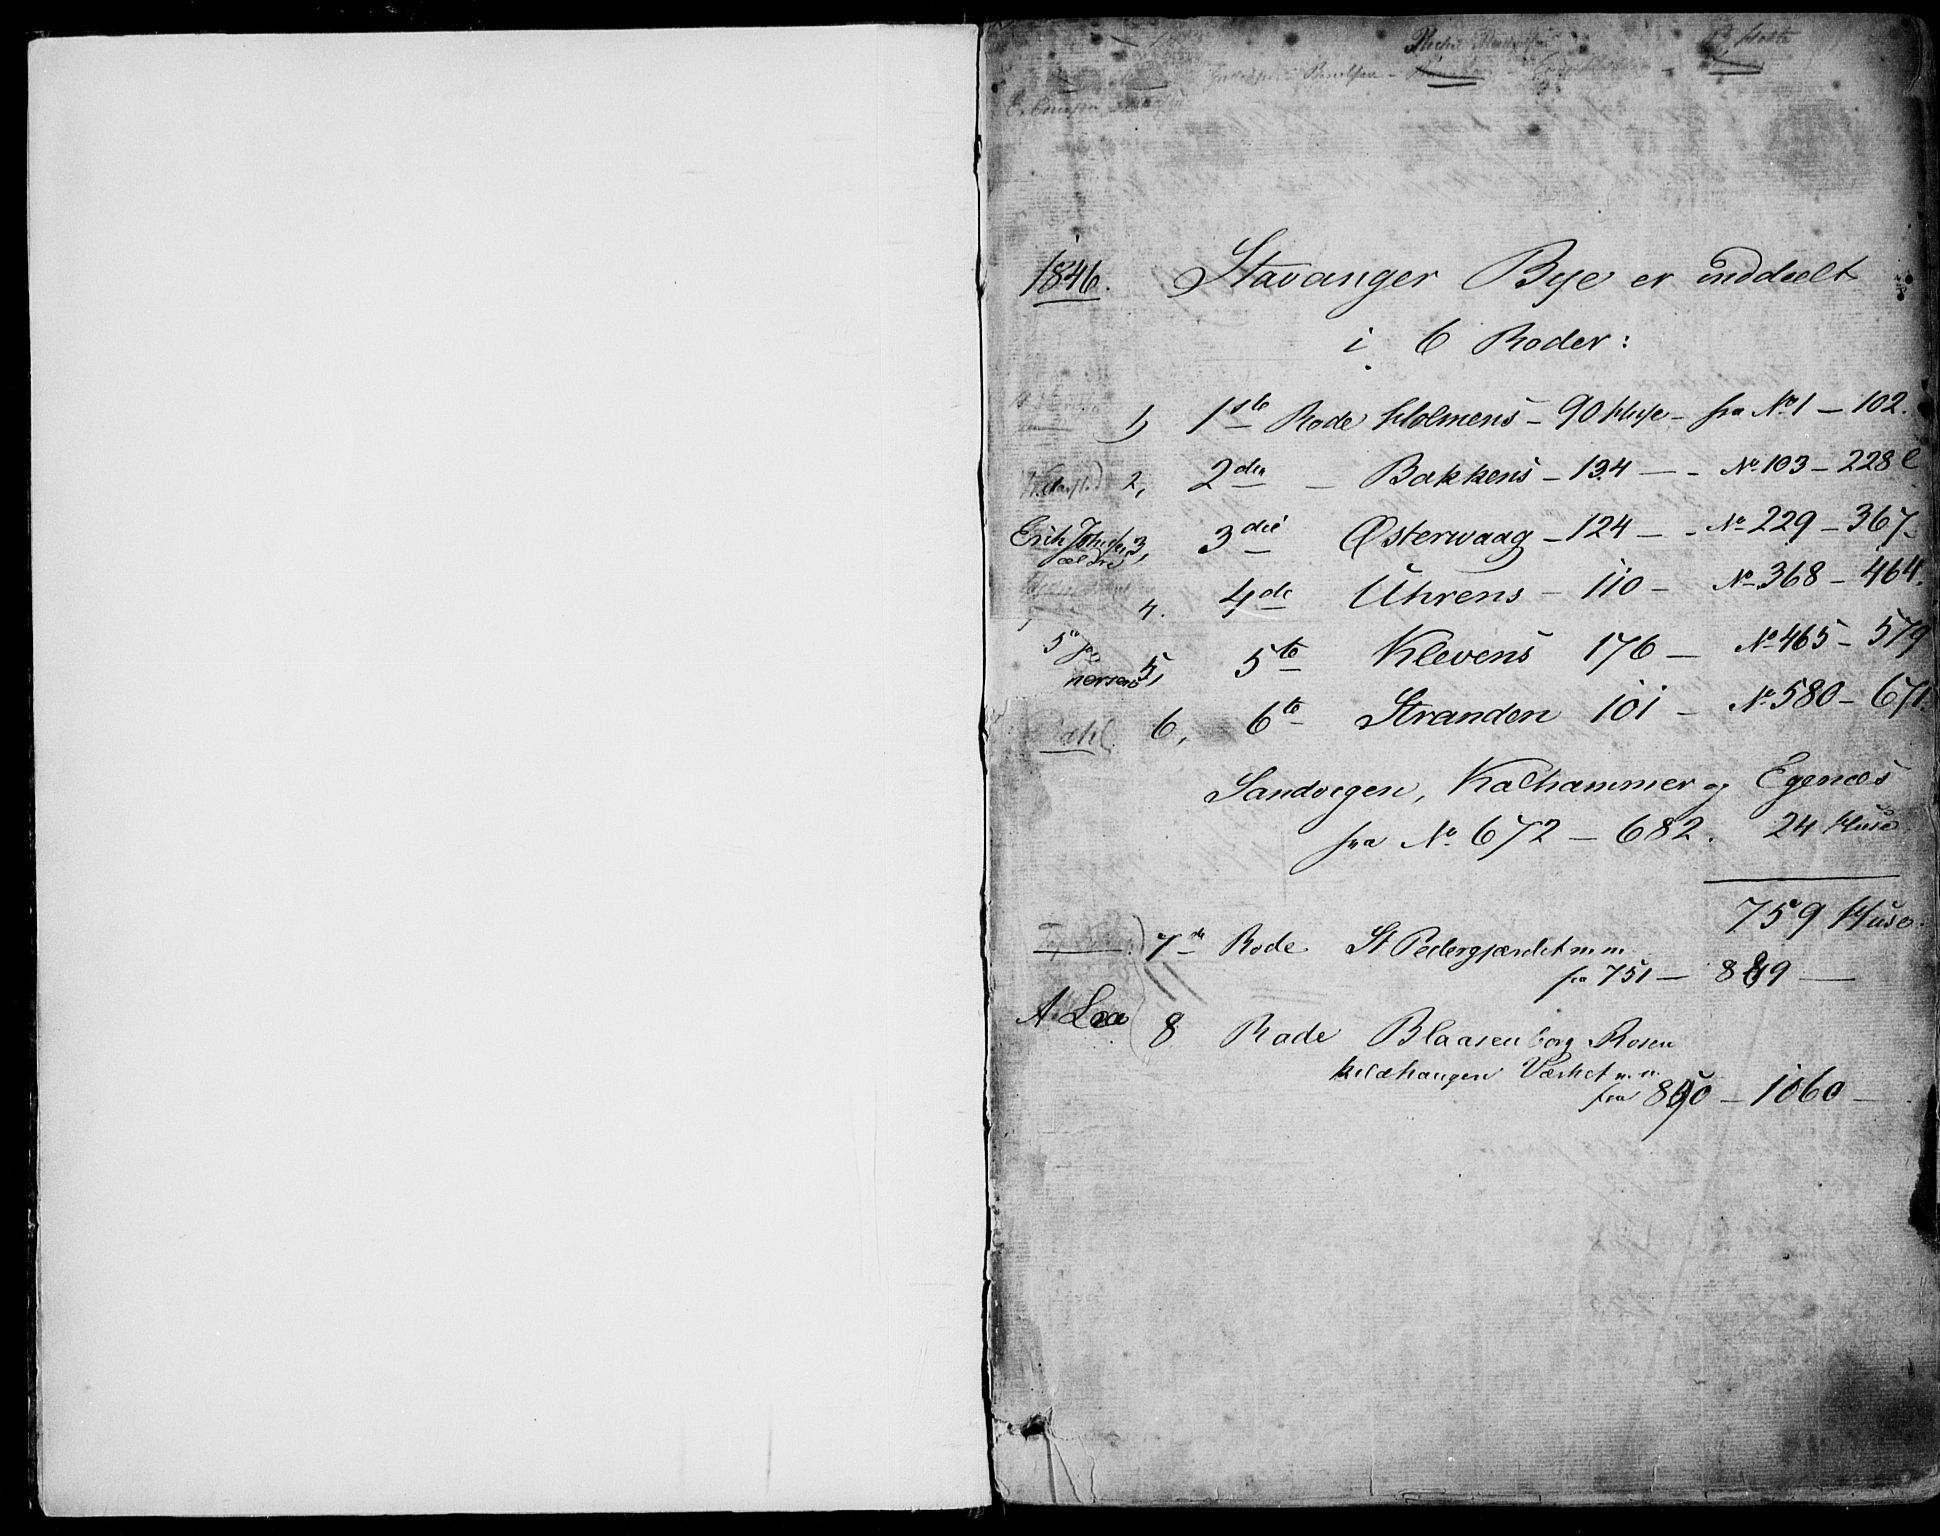 1846. Stavanger Bye er inddeelt
i 6 Roder:
1, 1ste Rode Holmens – 90 Huse – fra No 1 – 102.
2, 2den – Bakkens – 134 – - No 103 – 228 c
Erik Johnsen ældre 3, 3die Østerwaag – 124 – - No 229 – 367.
4. 4de Uhrens – 110 – No 368 – 464.
5, 5te Klevens 176 – No 465 – 579
Dahl. 6, 6te Stranden 101 – No 580 – 671.
Sandvigen, Kalhammer og Egenæs
fra No 672 – 682. 24 Huse.
759 Huse.
7de Rode St Pedergjærdet m m
fra 751 – 849 –
A Lea 8 Rode Blaasenborg Rosen
kildehaugen Værket m. m.
fra 850 – 1060 –